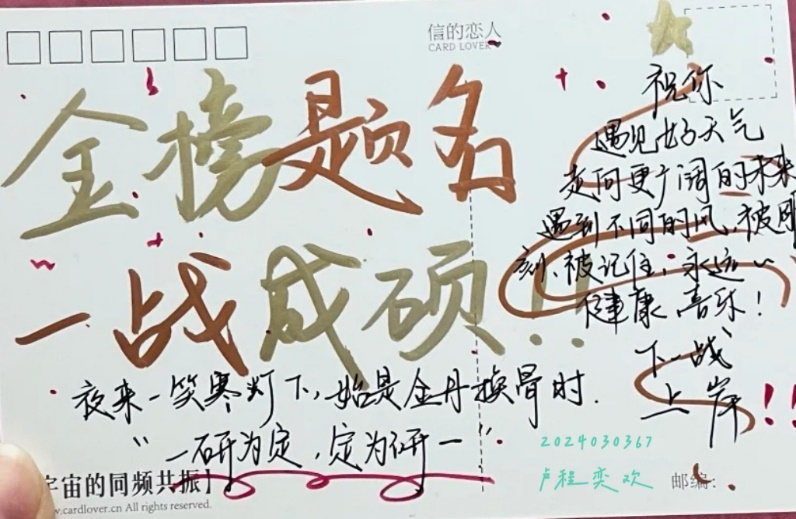 信的恋人
CARD LOVER
金榜题名
一战成硕!!
祝你
遇见好天气
走向更广阔的未来
遇到不同的风,被用
刻、被记住,永远~
健康、喜乐!
下一战
上岸!!
夜来一笑寒灯下,始是金丹换骨时.
"一研为定,定为研一"
2024030367
卢程奕欢
宇宙的同频共振】
www.cardlover.cn All rights reserved.
邮编: